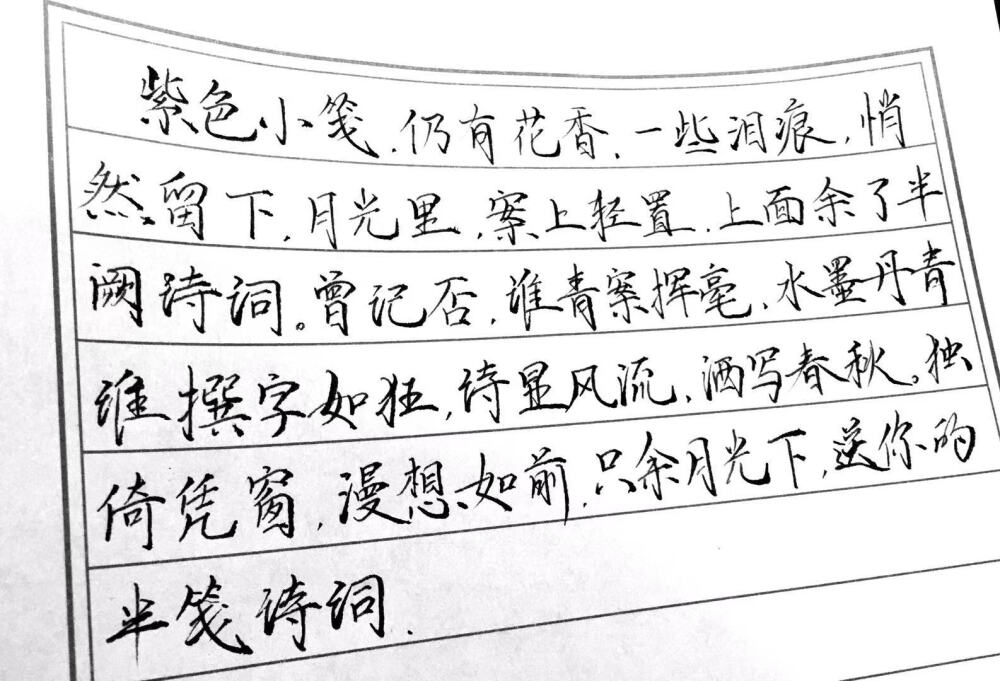 紫色小笺.仍有花香.一些泪痕,悄
然留下,月光里,案上轻置.上面余了半
阙诗词。曾记否,谁青案挥毫,水墨丹青
谁撰字如狂,诗显风流,洒写春秋。独
倚凭窗,漫想如前,只余月光下,送你的
半笺诗词.